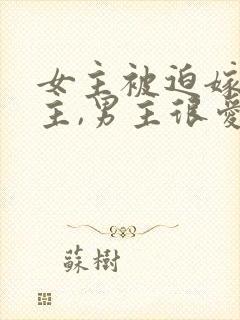 女主被迫嫁
主,男主很爱
蘇樹